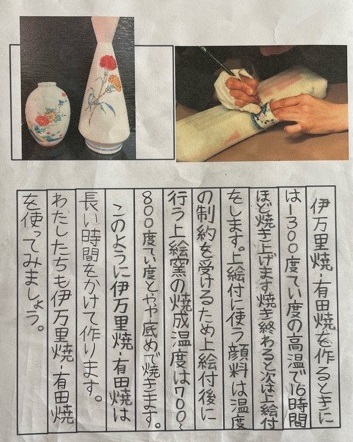 伊万里焼・有田焼を作るときに
は1300度てい度の高温で16時間
ほど焼き上げます焼き終わると次は上絵付
をします。上絵付に使う顔料は温度
の制約を受けるため上絵付後に
行う上絵窯の焼成温度は700〜
800度てい度とやや底めで焼きます。
このように伊万里焼・有田焼は
長い時間をかけて作ります。
わたしたちも伊万里焼・有田焼
を使ってみましょう。